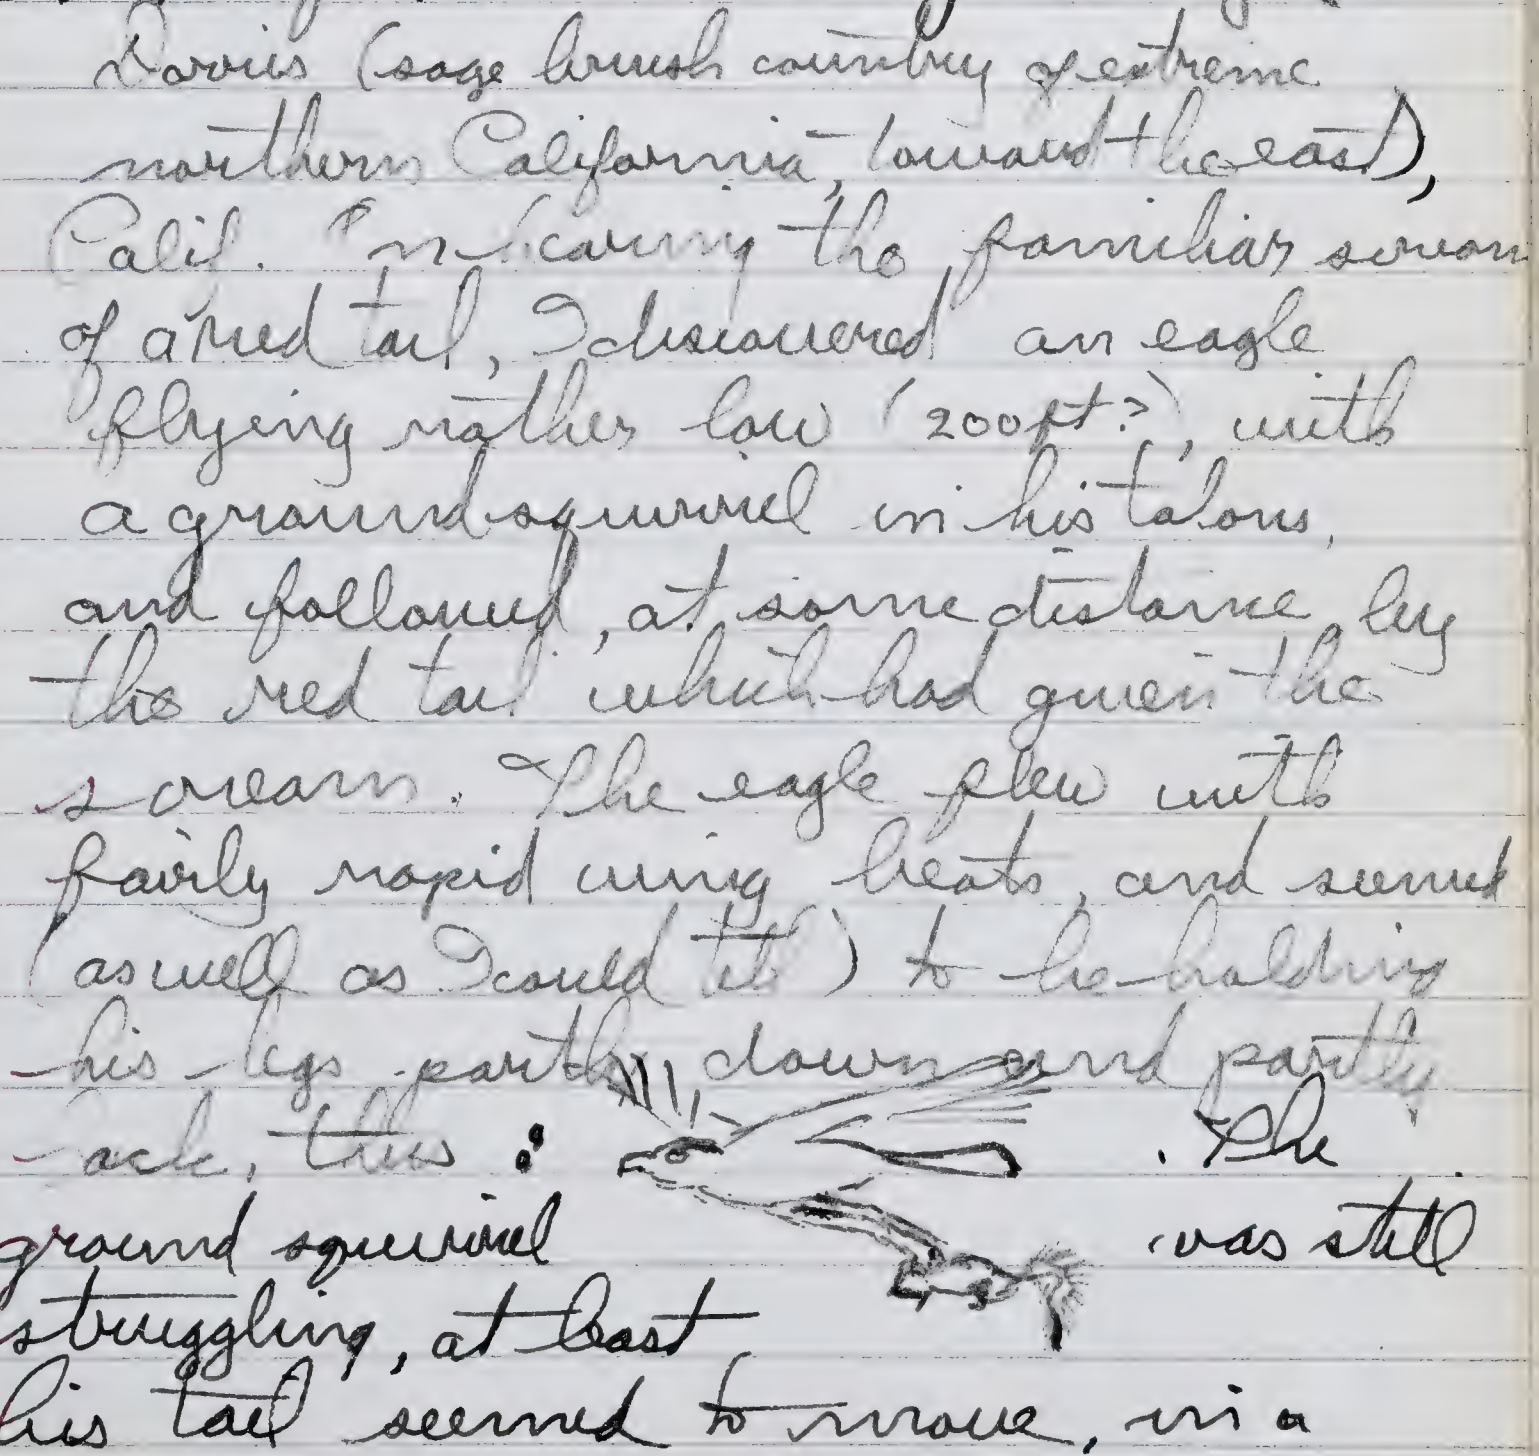 Davis (sage brush country of extreme
northern California, toward the east),
Calif. On hearing the familiar scream
of a red tail, I discovered an eagle
flying rather low (200 ft?), with
a ground squirrel in his talons,
and followed, at some distance, by
the red tail which had given the
scream. The eagle flew with
fairly rapid wing beats, and seemed
(as well as I could tell) to be holding
his legs partly down and partly
back, thus : . The
ground squirrel was still
struggling, at least
his tail seemed to move, in a